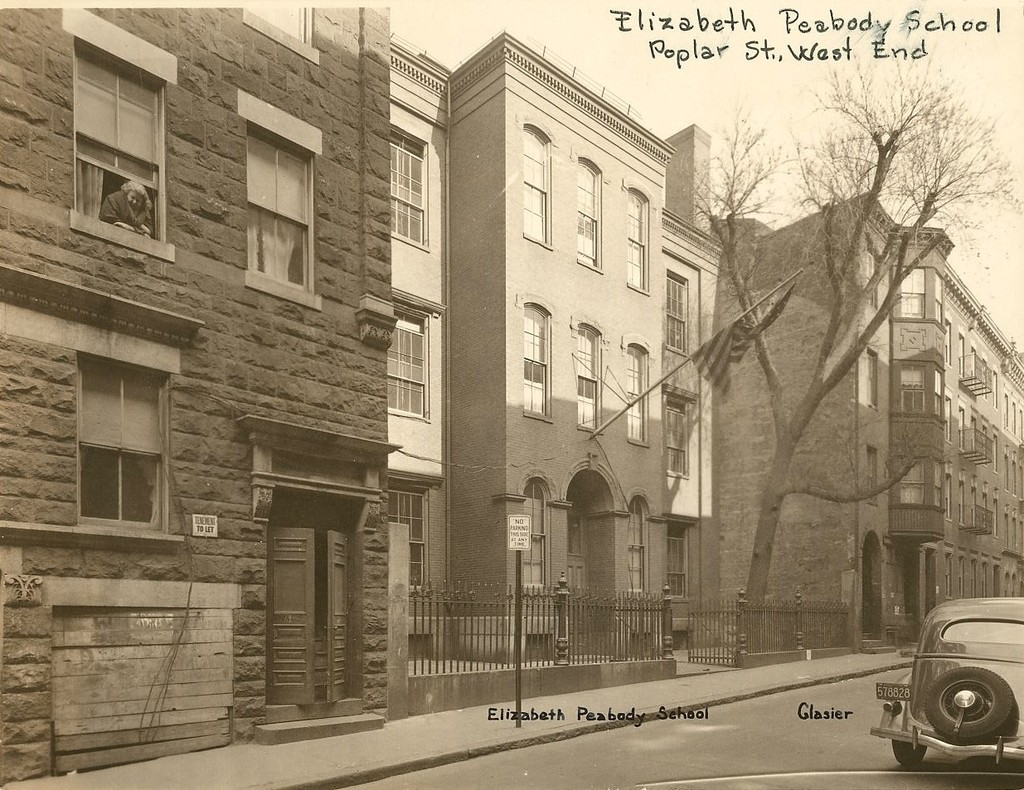 Elizabeth Peabody School
Poplar St., West End
TENEMENT
TO LET
NO
PARKING
THIS SIDE
AT ANY
TIME
578828
Elizabeth Peabody School
Glasier